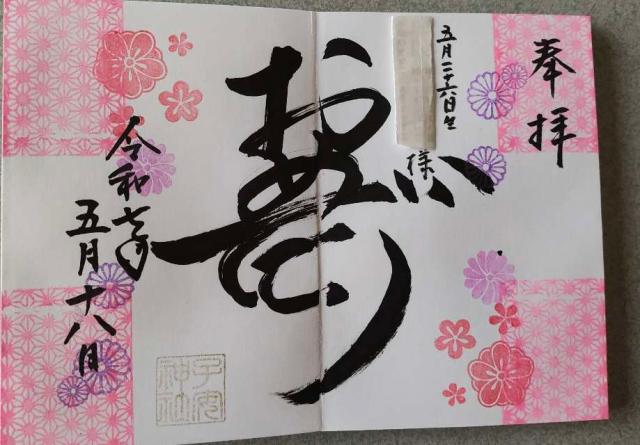 奉拝
五月二十六日生
様
寿
令和七年
五月十八日
子安
神社